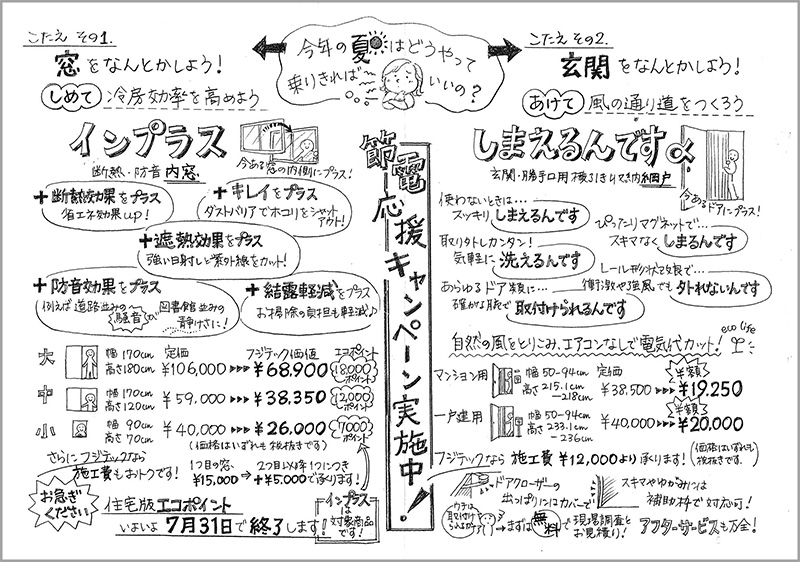 今年の夏はどうやって
乗りきれば
いいの？
こたえ その1.
窓をなんとかしよう！
しめて 冷房効率を高めよう
インプラス
今ある窓の内側にプラス！
断熱・防音 内窓
+断熱効果をプラス
省エネ効果up！
+キレイをプラス
ダストバリアでホコリをシャット
アウト！
+遮熱効果をプラス
強い日射しと紫外線をカット！
+防音効果をプラス
例えば道路並みの〜
騒音が
図書館並みの
静けさに！
+結露軽減をプラス
お掃除の負担も軽減♪
定価 フジテック価値 エコポイント
大 幅 170cm
高さ180cm
¥106,000 ▸▸▸ ¥68,900 18,000
ポイント
中 幅 170cm
高さ120cm
¥59,000 ▸▸▸ ¥38,350 12,000
ポイント
小 幅 90cm
高さ 70cm
¥40,000 ▸▸▸ ¥26,000 7000
ポイント
(価格はいずれも税抜きです)
さらにフジテックなら
施工費もおトクです！
1つ目の窓、
¥15,000 → 2つ目以降1つにつき
+¥5,000でおります！
お急ぎ
ください
住宅版エコポイント
いよいよ 7月31日で終了します！
インプラス
は
対象商品
です！
節電応援キャンペーン実施中！
こたえ その2.
玄関をなんとかしよう！
あけて 風の通り道をつくろう
しまえるんですα
玄関・勝手口用 横引き収納網戸
今あるドアにプラス！
使わないときは…
スッキリ しまえるんです
ぴったりマグネットで…
スキマなく しまるんです
取り外しカンタン！
気軽に 洗えるんです
レール形状改良で…
衝激や強風でも 外れないんです
あらゆるドア枠に…
確かな腕で 取付けられるんです
自然の風をとりこみ、エアコンなしで電気代カット！
eco life
定価
マンション用 幅 50-94cm
高さ 215.1cm
-218cm
¥38,500 ▸▸▸▸ 半額 ¥19,250
一戸建用 幅 50-94cm
高さ 233.1cm
-236cm
¥40,000 ▸▸▸▸ 半額 ¥20,000
(価格はいずれも
税抜きです.)
フジテックなら 施工費 ¥12,000より承ります！
ドアクローザーの
出っぱりにはカバーで
スキマやゆがみには
補助枠で対応可！
ウチは
取付けられるかな？
まずは 無料で 現場調査と
お見積り！
アフターサービスも万全！